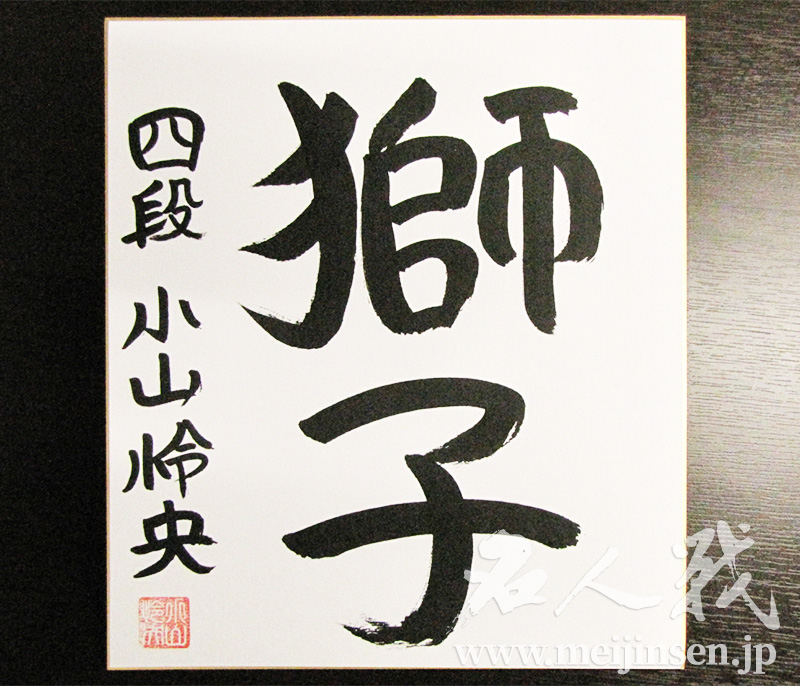 獅子
四段 小山怜央
名人戦
www.meijinsen.jp